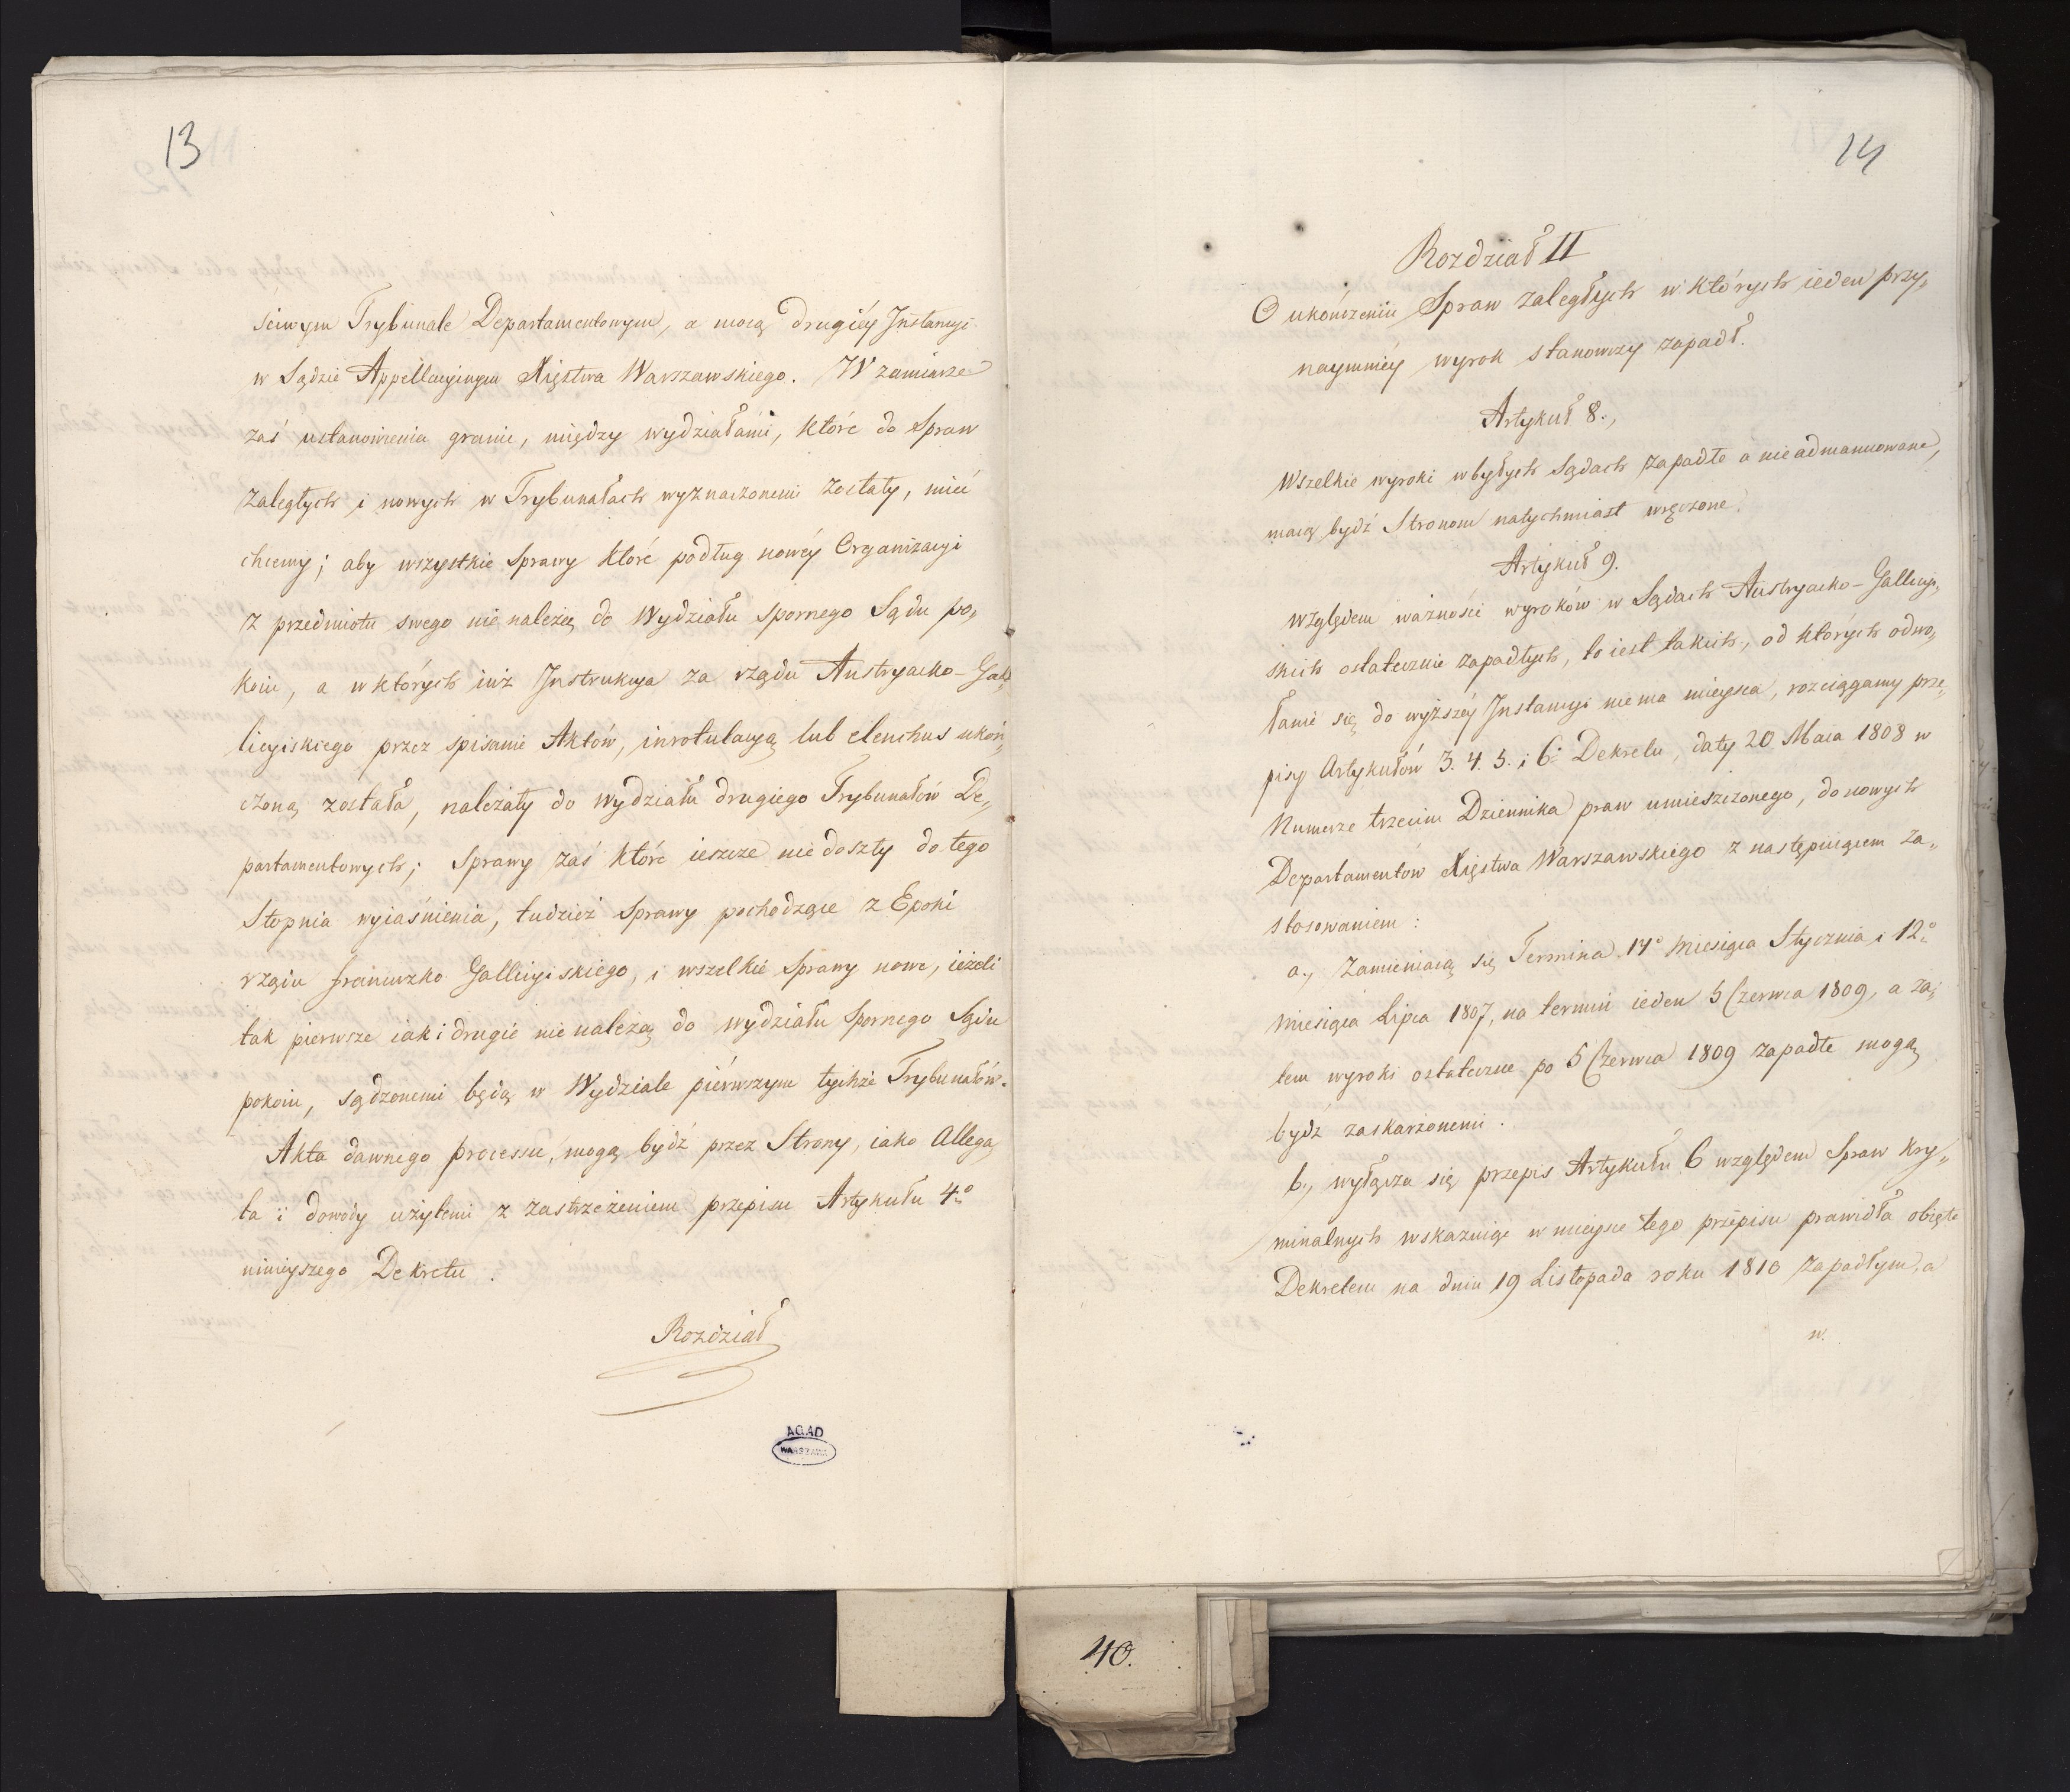 13
ściwym Trybunale Departamentowym, a mocą drugiéy Instancyi
w Sądzie Appellacyinym Xięstwa Warszawskiego. W zamiarze
zaś ustanowienia granic, między wydziałami, które do Spraw
zaległych i nowych w Trybunałach wyznaczonemi zostały, mieć
chcemy; aby wszystkie Sprawy które podług nowéy Organizacyi
z przedmiotu swego nie należą do Wydziału spornego Sądu po„
koiu, a w których iuż Instrukcya za rządu Austryacko-Gal„
licyiskiego przez spisanie Aktów, inrotulacyą lub elenchus ukoń„
czoną została, należały do wydziału drugiego Trybunałów De„
partamentowych; Sprawy zaś które ieszcze nie doszły do tego
Stopnia wyiaśnienia, tudzież Sprawy pochodzące z Epoki
rządu francuzko Gallicyiskiego, i wszelkie Sprawy nowe, ieżeli
tak pierwsze iak i drugie nie należą do wydziału Spornego Sądu
pokoiu, sądzonemi będą w Wydziale piérwszym tychże Trybunałów.
Akta dawnego processu, mogą bydź przez Strony, iako Allega„
ta i dowody użytemi z zastrzeżeniem przepisu Artykułu 4º
ninieyszego Dekretu.
Rozdział
AGAD
WARSZAWA
14
Rozdział II
O ukończeniu Spraw zaległych w których ieden przy„
naymniéy wyrok stanowczy zapadł.
Artykuł 8.,
Wszelkie wyroki w byłych Sądach zapadłe a nieadmanuowane,
maią bydź Stronom natychmiast wręczone.
Artykuł 9.
Względem ważności wyroków w Sądach Austryacko-Gallicyi„
skich ostatecznie zapadłych, to iest takich, od których odwo„
łanie się do wyższéy Instancyi nie ma mieysca, rozciągamy prze„
pisy Artykułów 3. 4. 5. i 6º Dekretu, daty 20 Maia 1808 w
Numerze trzecim Dziennika praw umieszczonego, do nowych
Departamentów Xięstwa Warszawskiego z następuiącem za„
stosowaniem:
a., Zamieniaią się Termina 14º Miesiąca Stycznia i 12º
Miesiąca Lipca 1807, na termin ieden 5 Czerwca 1809, a za„
tem wyroki ostateczne po 5 Czerwca 1809 zapadłe mogą
bydź zaskarżonemi.
b., wyłącza się przepis Artykułu 6 względem Spraw kry„
minalnych wskazuiąc w mieysce tego przepisu prawidła obięte
Dekretem na dniu 19 Listopada roku 1810 zapadłym, a
w.
40.